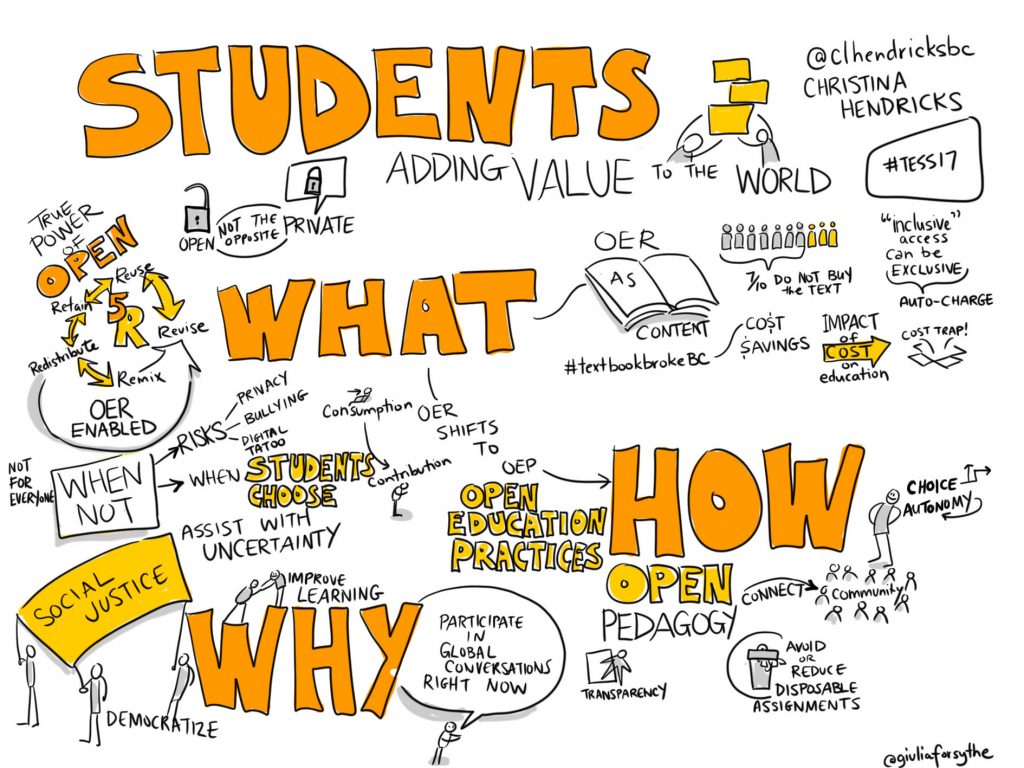 STUDENTS
ADDING VALUE TO THE WORLD
@clhendricksbc
CHRISTINA
HENDRICKS
#TESS17
OPEN NOT THE
OPPOSITE PRIVATE
TRUE
POWER
OF
OPEN
5R
Reuse
Revise
Remix
Redistribute
Retain
OER
ENABLED
WHAT
OER
AS
CONTENT
7/10 DO NOT BUY
the TEXT
"inclusive"
access
can be
EXCLUSIVE
AUTO-CHARGE
#textbookbrokeBC
COST
$AVINGS
IMPACT
of
COST
on
education
COST TRAP!
OER
SHIFTS
TO
OEP
OPEN
EDUCATION
PRACTICES
Consumption
Contribution
NOT
FOR
EVERYONE
WHEN
NOT
RISKS
PRIVACY
BULLYING
DIGITAL
TATOO
WHEN STUDENTS
CHOOSE
ASSIST WITH
UNCERTAINTY
HOW
OPEN
PEDAGOGY
CHOICE
AUTONOMY
CONNECT
Community
TRANSPARENCY
AVOID
OR
REDUCE
DISPOSABLE
ASSIGNMENTS
WHY
SOCIAL
JUSTICE
DEMOCRATIZE
IMPROVE
LEARNING
PARTICIPATE
IN
GLOBAL
CONVERSATIONS
RIGHT NOW
@giuliaforsythe